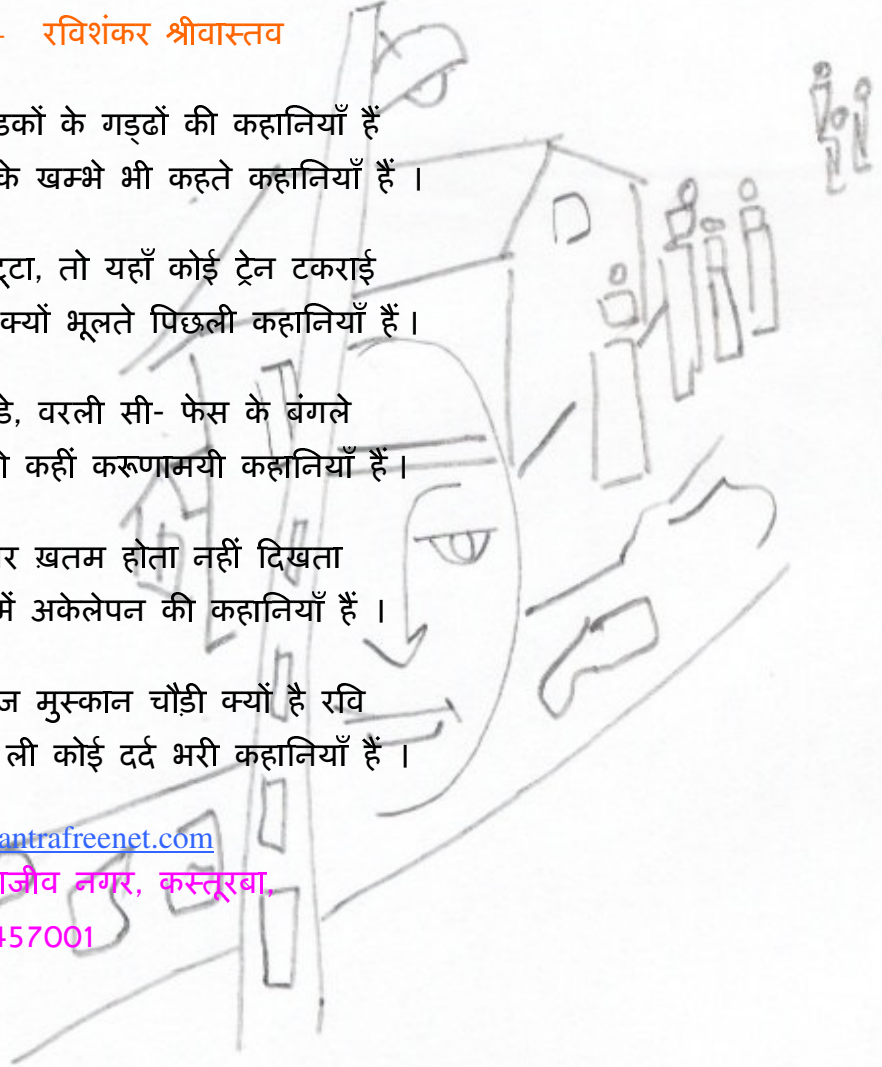 - रविशंकर श्रीवास्तव
के गड्ढों की कहानियाँ हैं
के खम्भे भी कहते कहानियाँ हैं ।
तो यहाँ कोई ट्रेन टकराई
क्यों भूलते पिछली कहानियाँ हैं ।
वरली सी- फेस के बंगले
कहीं करूणामयी कहानियाँ हैं ।
ख़तम होता नहीं दिखता
में अकेलेपन की कहानियाँ हैं ।
मुस्कान चौड़ी क्यों है रवि
ली कोई दर्द भरी कहानियाँ हैं ।
antrafreenet.com
नगर, कस्तूरबा,
457001